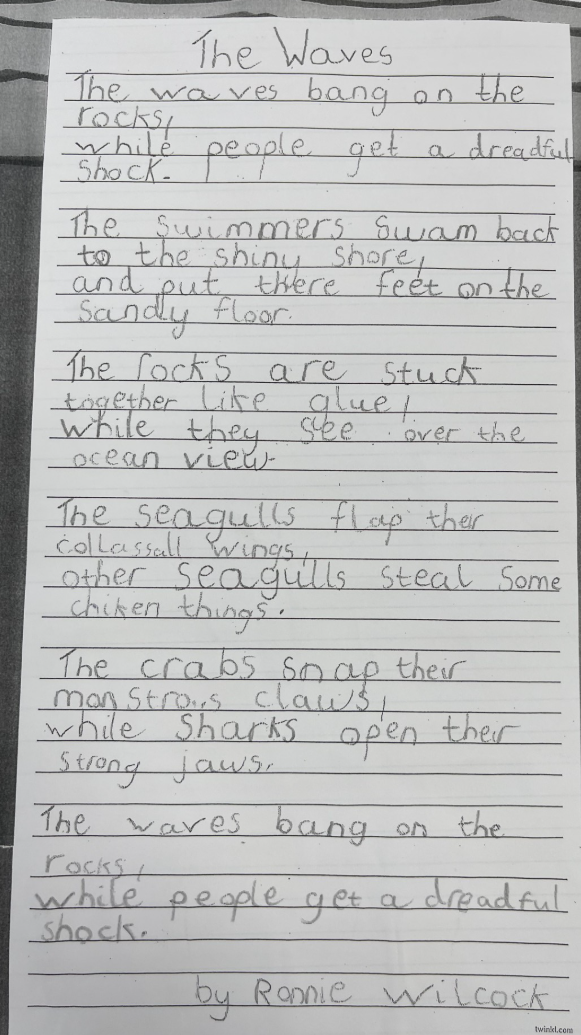 The Waves
The waves bang on the
rocks,
while people get a dreadful
shock.
The swimmers swam back
to the shiny shore,
and put there feet on the
sandy floor.
The rocks are stuck
together like glue,
while they see over the
ocean view.
The seagulls flap ther
collassall wings,
other seagulls steal some
chiken things.
The crabs snap their
monstrous claws,
while sharks open ther
strong jaws.
The waves bang on the
rocks,
while people get a dreadful
shock.
by Ronnie Wilcock
twinkl.com